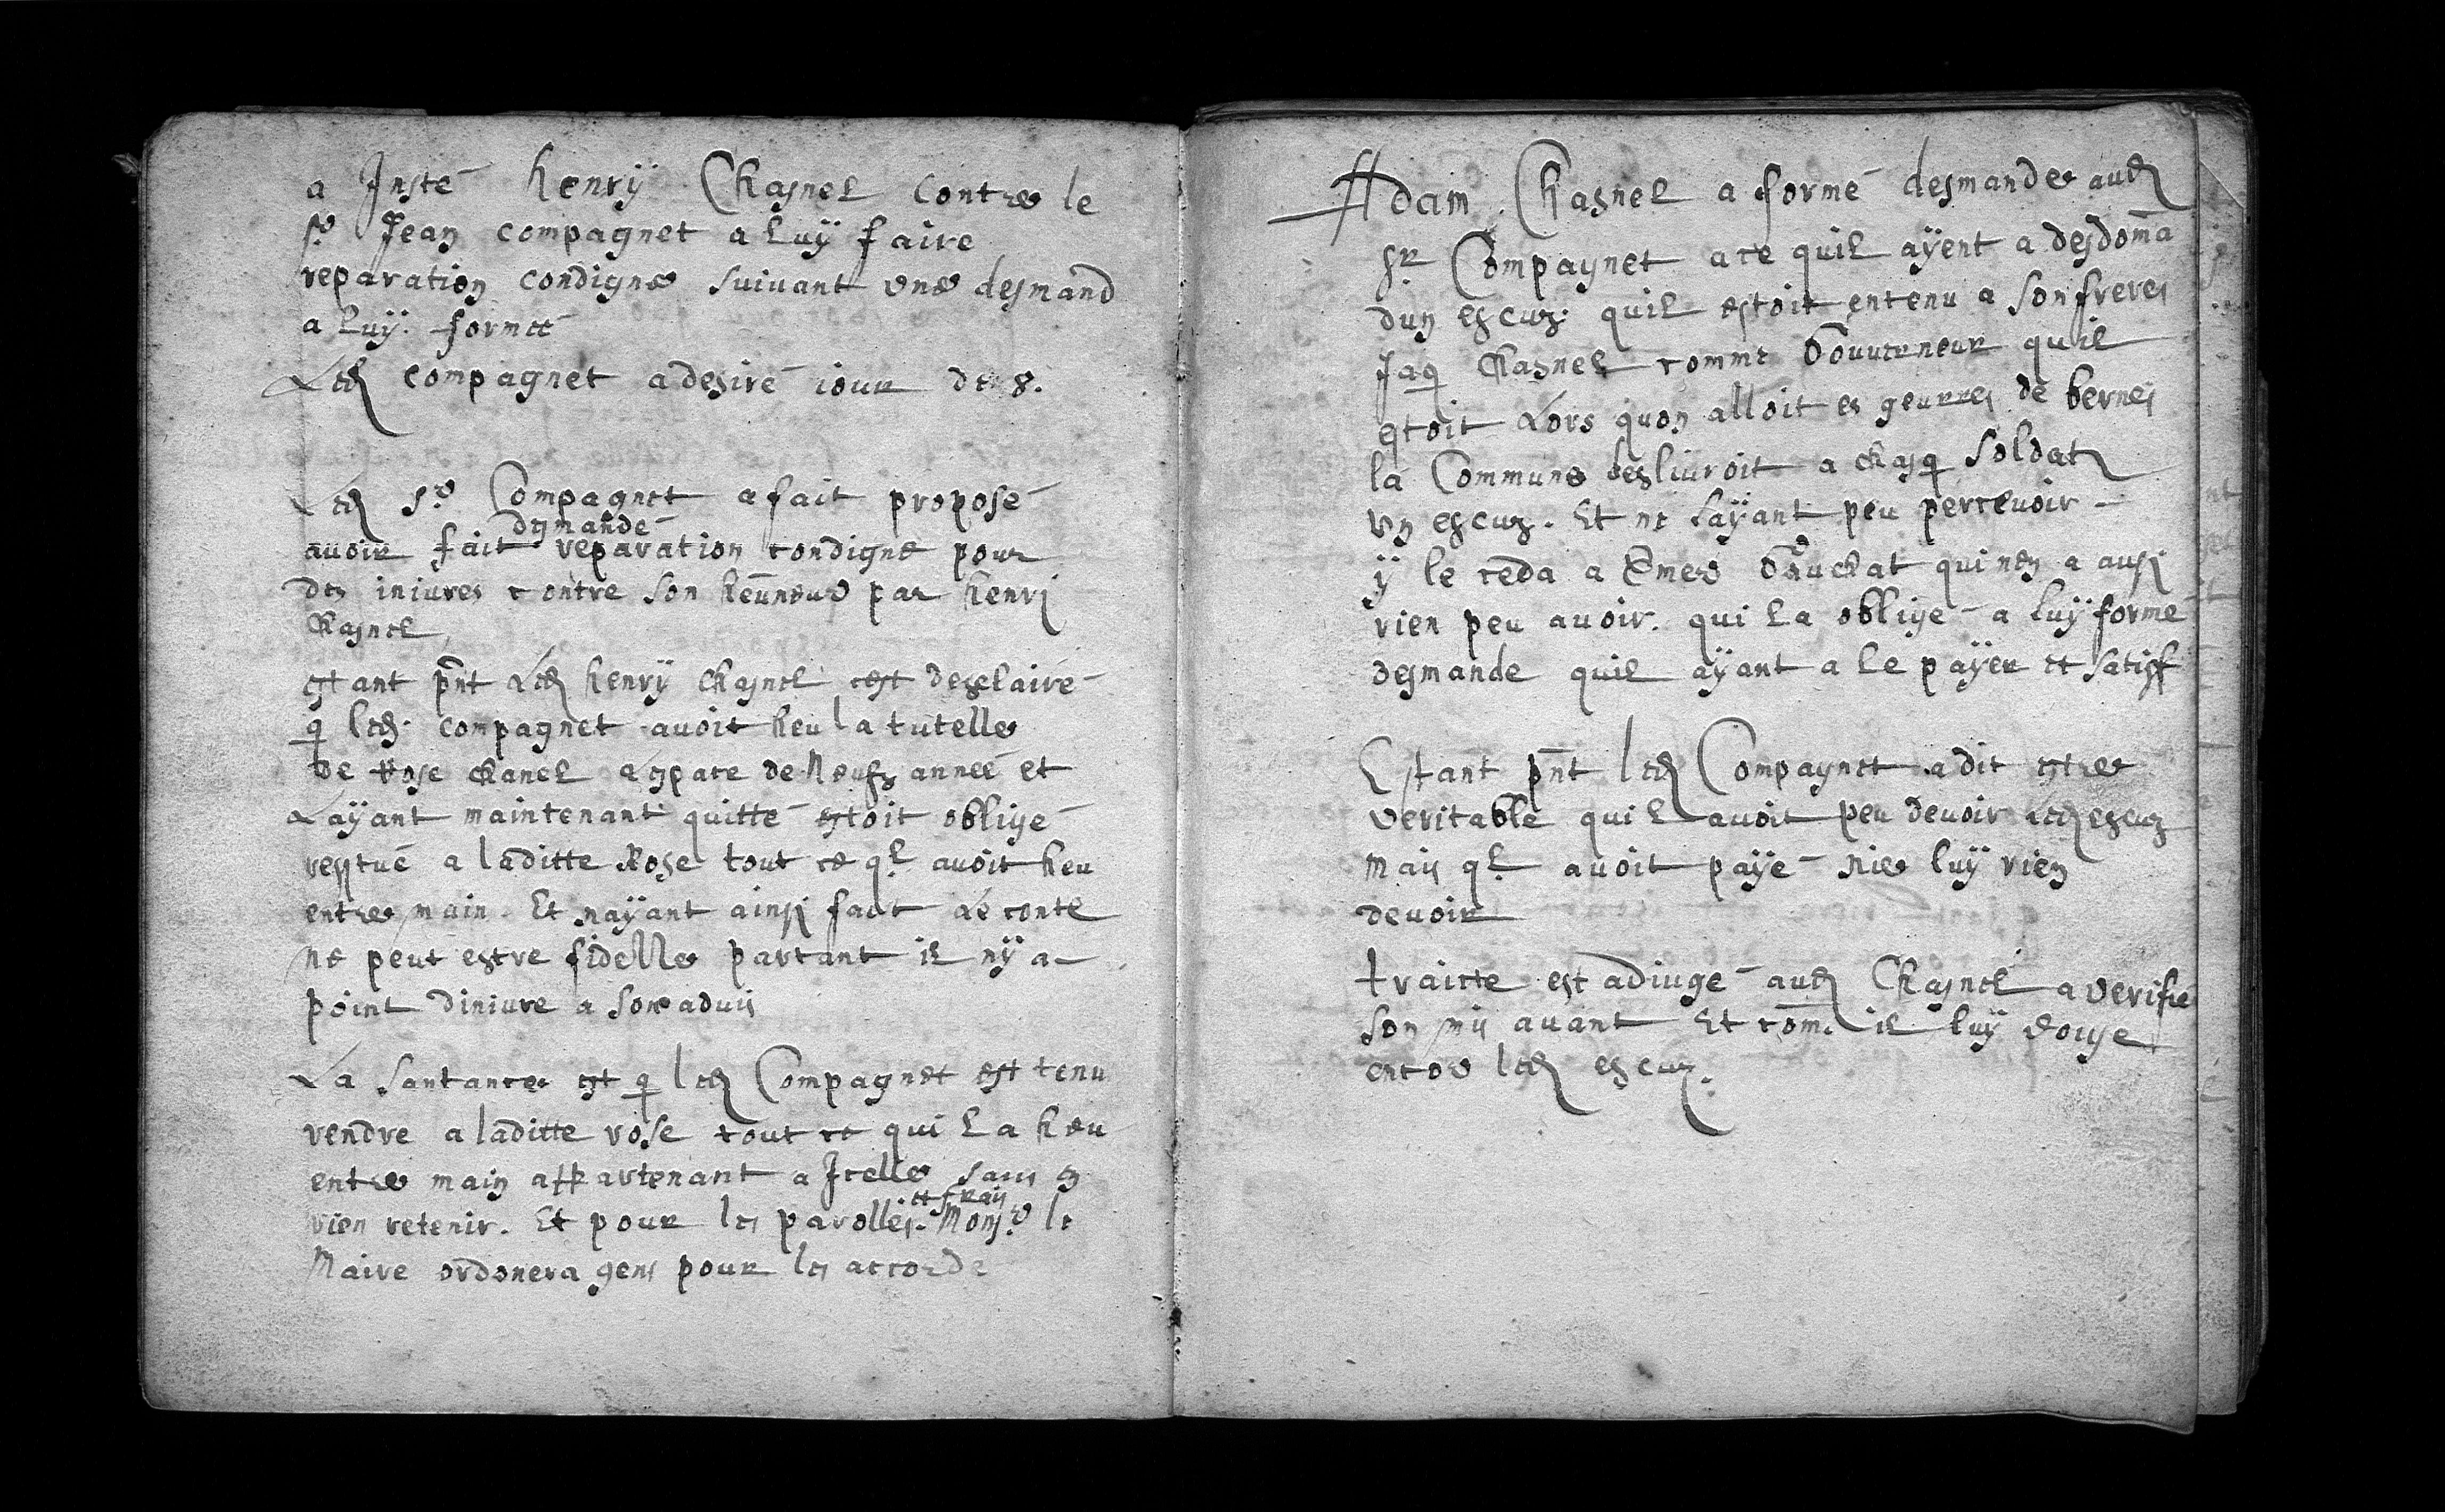 a Insté henrÿ Chasnel Contre le
sr. Jean compagnet a luÿ faire
reparation condigne suivant une desmand
a luÿ formee
Led compagnet a desiré iour de 8.
Led sr. Compagnet a fait proposé
desmandé
auoir fait reparation condigne pour
des iniures contre son heunneur par henri
Chasnel
estant pnt Led henrÿ chasnel est desclairé
q led. compagnet auoit heu la tutelle
de Rose chanel lespace de Neufz anneé et
Laÿant maintenant quitté estoit obligé
restué a laditte Rose tout ce ql auoit heu
entre main. Et naÿant ainsi faict le conte
ne peut estre fidelle partant il nÿ a
point diniure a son aduis
La santance est q led Compagnet est tenu
rendre a laditte rose tout ce quil a heu
entre main appartenant a Icelle sans en
et frais
rien retenir. Et pour les parolles. Monsr. le
Maire ordonera gens pour les accorde
Adam Chasnel a formé desmande aud
sr. Compagnet a ce quil aÿent a desdoma
dun escuz. quil estoit entenu a son freres
Jaq Chasnel comme Gouuerneur quil
estoit Lors quon alloit es geurres de bernes
la Commune desliuroit a chasq soldatz
un escuz. Et ne layant peu perceuoir
ÿ le ceda a Emer Gauchat qui nen a ausi
rien peu auoir. qui la obligé a luÿ formé
desmande quil aÿant a le païer et satisf
Estant pnt led Compagnet a dit estre
veritable quil auoit peu deuoir led escuz
mais ql auoit païé nie luÿ rien
deuoir
traicte est adiugé aud Chasnel a verifie
son mis auant Et com. il luÿ doige
encor led escuz.